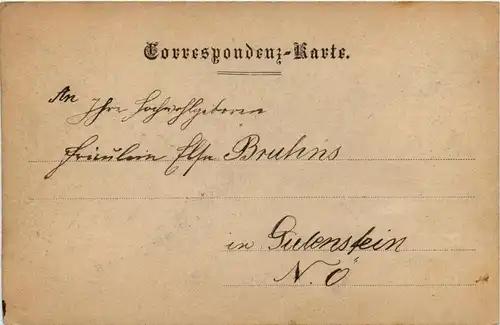 Correspondenz-Karte.
An
Ihre Hochwohlgeboren
Fräulein Else Bruhns
in Gutenstein
N. Ö